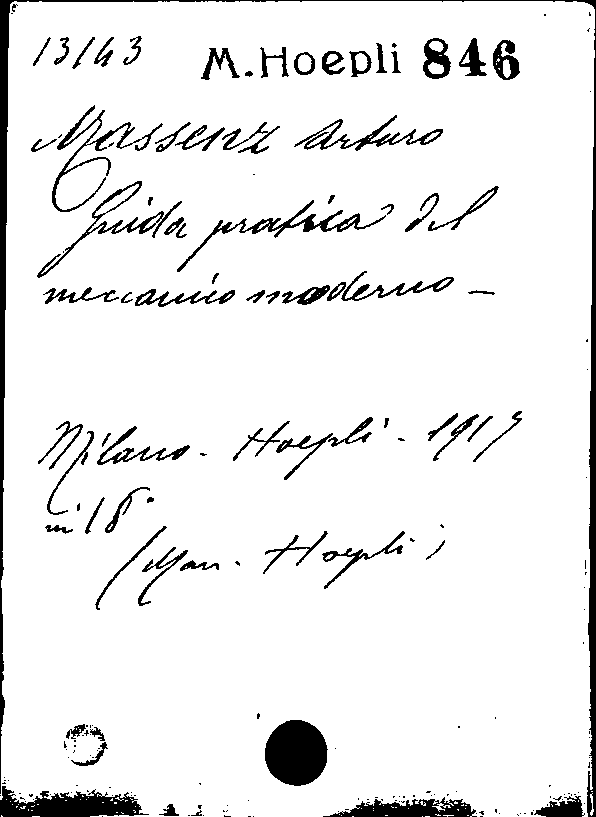 13143 M. Hoepli 846
Massenz Arturo
Guida pratica del
meccanico moderno –
Milano - Hoepli - 1917
in 18°
(Man. Hoepli)